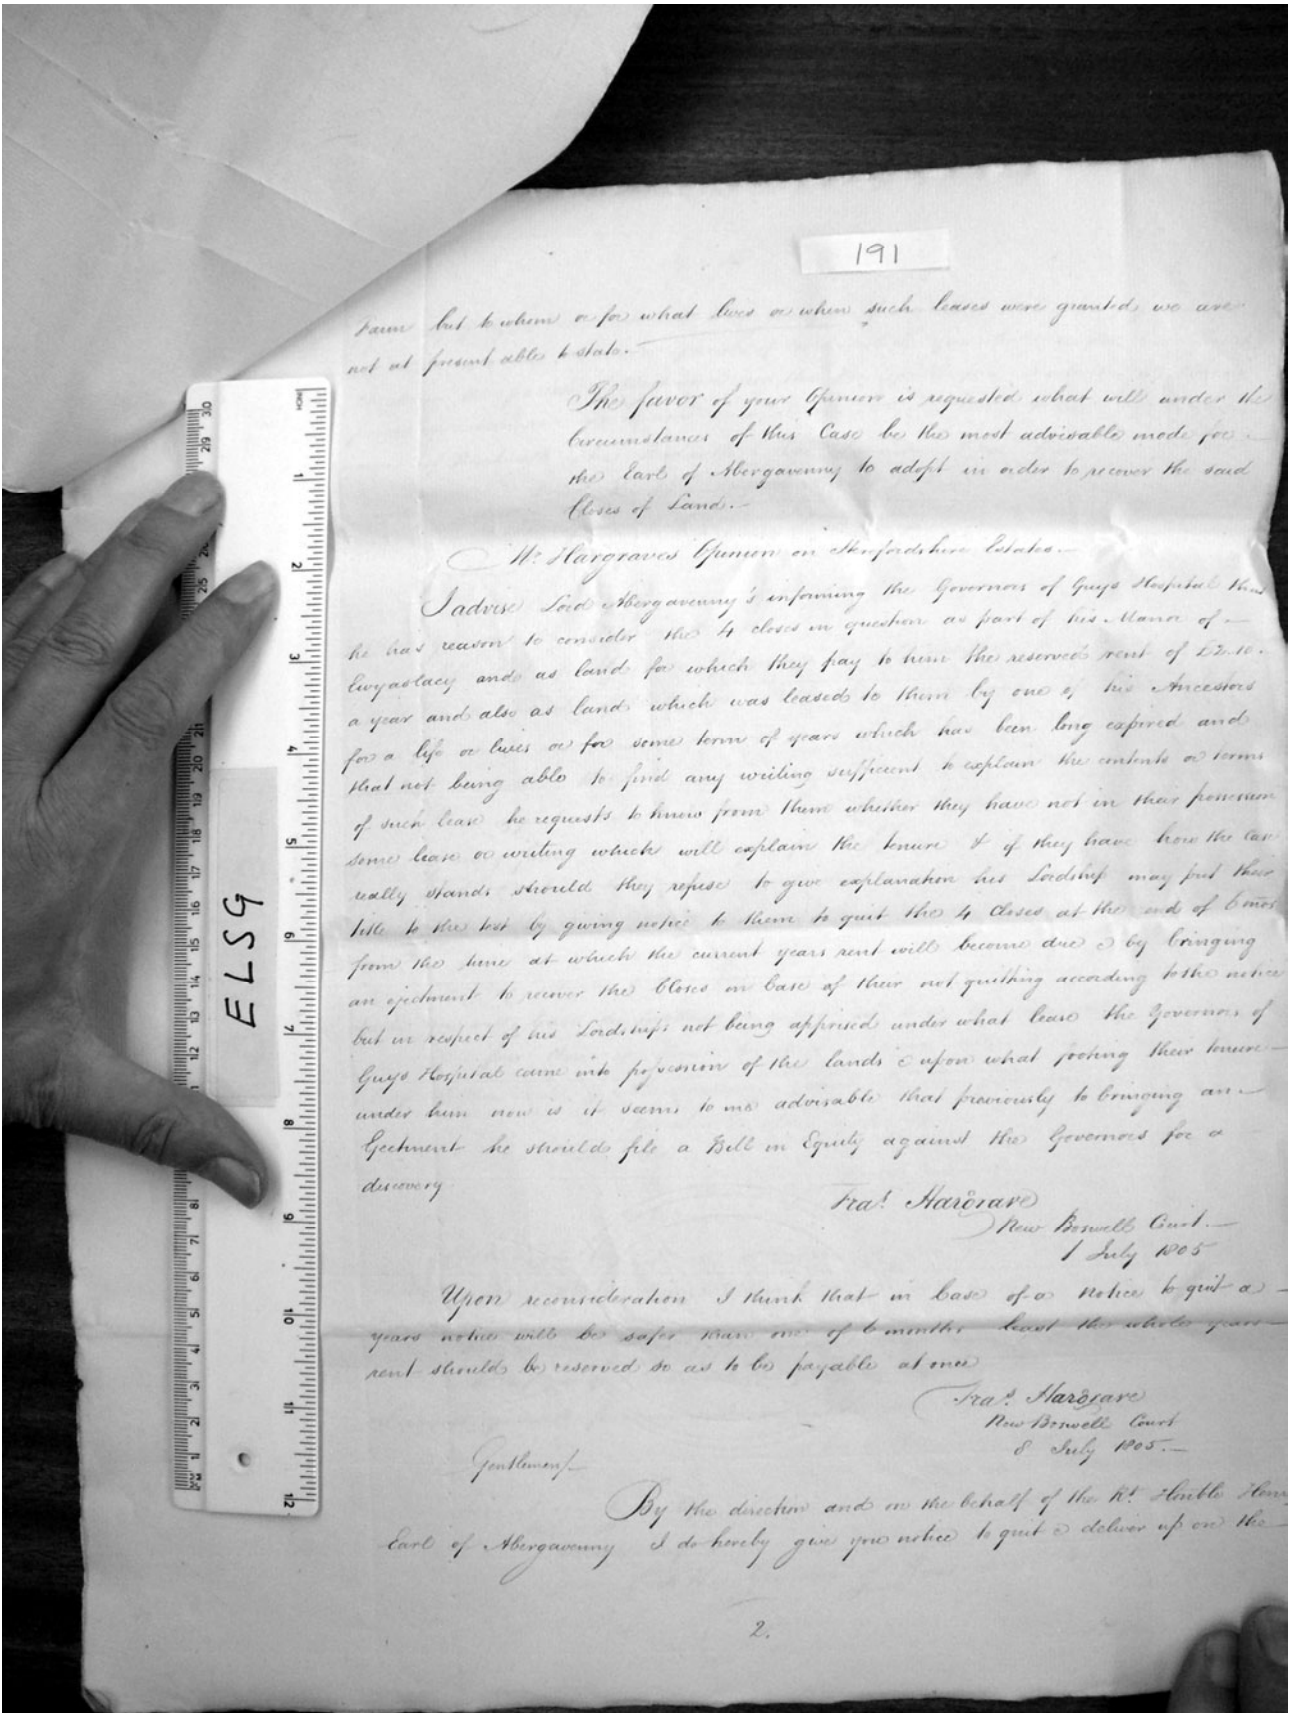 191
Farm but to whom or for what lives or when such leases were granted we are
not at present able to state.
The favor of your Opinion is requested what will under the
Circumstances of this Case be the most advisable mode for
the Earl of Abergavenny to adopt in order to recover the said
Closes of Land.
Mr. Hargraves Opinion on Herefordshire Estates.
I advise Lord Abergavenny's informing the Governors of Guys Hospital that
he has reason to consider the 4 closes in question as part of his Manor of
Ewyaslacy and as land for which they pay to him the reserved rent of £2..10.
a year and also as land which was leased to them by one of his Ancestors
for a life or lives or for some term of years which has been long expired and
that not being able to find any writing sufficient to explain the contents or terms
of such lease he requests to know from them whether they have not in their possession
some lease or writing which will explain the tenure & if they have how the case
really stands should they refuse to give explanation his Lordship may put their
title to the test by giving notice to them to quit the 4 Closes at the end of 6 mos
from the time at which the current years rent will become due & by bringing
an ejectment to recover the Closes in Case of their not quitting according to the notice
but in respect of his Lordships not being apprised under what lease the Governors of
Guys Hospital came into possession of the lands & upon what footing their tenure
under him now is it seems to me advisable that previously to bringing an
Ejectment he should file a Bill in Equity against the Governors for a
discovery
Fras. Hargrave
New Boswell Court.
1 July 1805
Upon reconsideration I think that in Case of a notice to quit a
years notice will be safer than one of 6 months least the whole years
rent should be reserved so as to be payable at once
Fras. Hargrave
New Boswell Court
8 July 1805.
Gentlemen/
By the direction and on the behalf of the Rt. Honble Henry
Earl of Abergavenny I do hereby give you notice to quit & deliver up on the
2.
INCH
1
2
3
4
5
6
7
8
9
10
11
12
ELSG